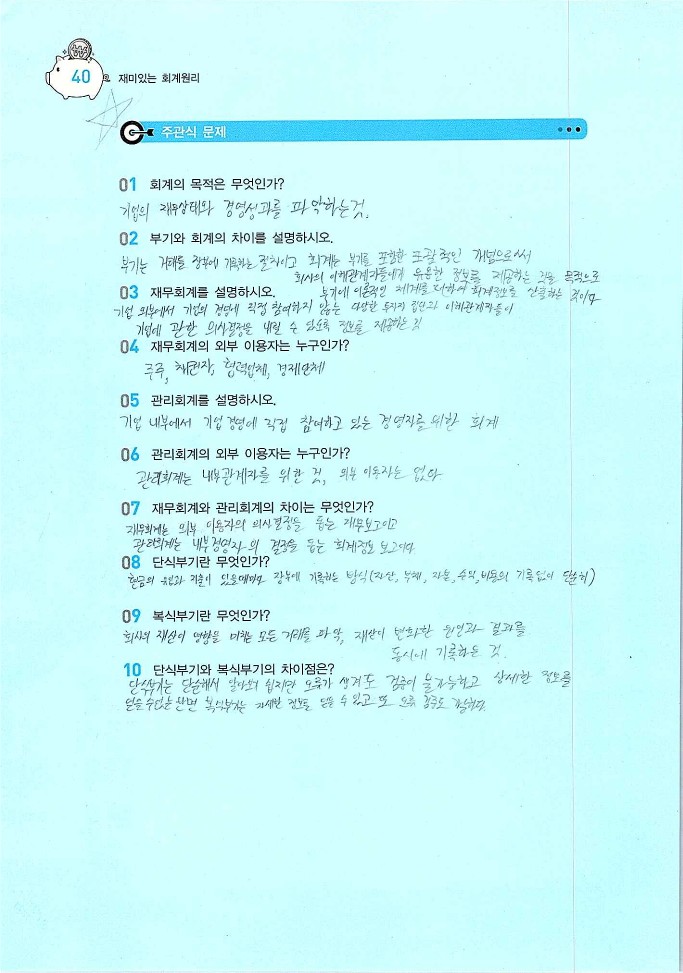 40 재미있는 회계원리
주관식 문제
01 회계의 목적은 무엇인가?
기업의 재무상태와 경영성과를 파악하는것.
02 부기와 회계의 차이를 설명하시오.
부기는 거래를 장부에 기록하는 절차이고 회계는 부기를 포함한 포괄적인 개념으로써
회사의 이해관계자들에게 유용한 정보를 제공하는 것을 목적으로
부기에 이론적인 체계를 더하여 회계정보를 산출하는 것이다
03 재무회계를 설명하시오.
기업 외부에서 기업의 경영에 직접 참여하지 않는 다양한 투자자 집단과 이해관계자들이
기업에 관한 의사결정을 내릴 수 있도록 정보를 제공하는 것
04 재무회계의 외부 이용자는 누구인가?
주주, 채권자, 협력업체, 경제단체
05 관리회계를 설명하시오.
기업 내부에서 기업경영에 직접 참여하고 있는 경영자를 위한 회계
06 관리회계의 외부 이용자는 누구인가?
관리회계는 내부관계자를 위한 것, 외부 이용자는 없다
07 재무회계와 관리회계의 차이는 무엇인가?
재무회계는 외부 이용자의 의사결정을 돕는 재무보고이고
관리회계는 내부경영자의 결정을 돕는 회계정보 보고이다
08 단식부기란 무엇인가?
현금의 유입과 지출이 있을때마다 장부에 기록하는 방식(자산, 부채, 자본, 수익, 비용의 기록없이 단순히)
09 복식부기란 무엇인가?
회사의 재산에 영향을 미치는 모든 거래를 파악, 재산이 변화한 원인과 결과를
동시에 기록하는 것.
10 단식부기와 복식부기의 차이점은?
단식부기는 단순해서 알아보기 쉽지만 오류가 생겨도 검증이 불가능하고 상세한 정보를
얻을수없는 반면 복식부기는 자세한 정보를 얻을 수 있고 또 오류 검증도 가능하다.